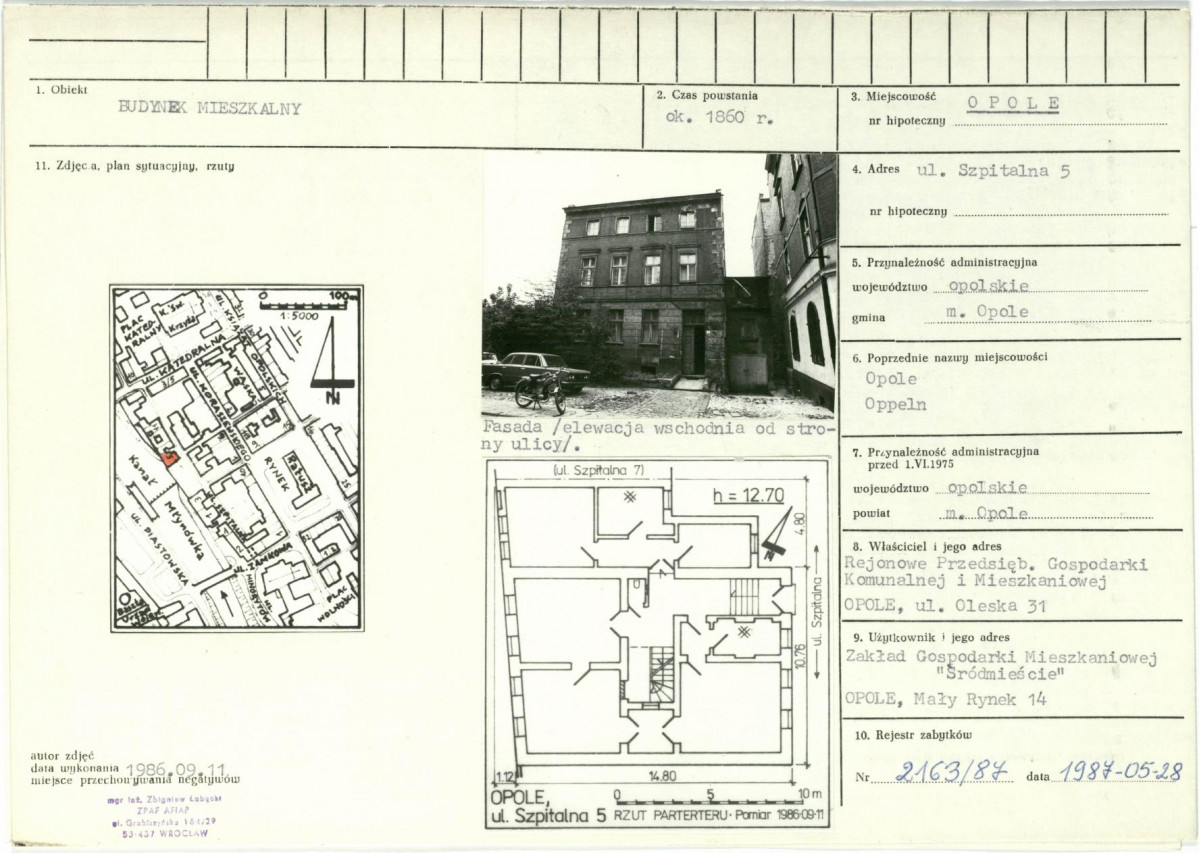 1. Obiekt
BUDYNEK MIESZKALNY
2. Czas powstania
ok. 1860 r.
3. Miejscowość
OPOLE
nr hipoteczny
11. Zdjęcia, plan sytuacyjny, rzuty
4. Adres ul. Szpitalna 5
nr hipoteczny
5. Przynależność administracyjna
województwo opolskie
gmina m. Opole
6. Poprzednie nazwy miejscowości
Opole
Oppeln
7. Przynależność administracyjna
przed 1.VI.1975
województwo opolskie
powiat m. Opole
8. Właściciel i jego adres
Rejonowe Przedsięb. Gospodarki
Komunalnej i Mieszkaniowej
OPOLE, ul. Oleska 31
9. Użytkownik i jego adres
Zakład Gospodarki Mieszkaniowej
"Śródmieście"
OPOLE, Mały Rynek 14
10. Rejestr zabytków
Nr 2163/87 data 1987-05-28
0 100m
1:5000
N
PLAC
KATED-
RALNY
K. Św.
Krzyża
UL. KSIĄŻĄT OPOLSKICH
UL. KATEDRALNA
3/5
UL. KORASZEWSKIEGO
RYNEK
Ratusz
Kanał
Młynówka
SZPITALNA
UL. PIASTOWSKA
UL. ZAMKOWA
UL. MINORYTÓW
PLAC
WOLNOŚCI
Fasada /elewacja wschodnia od stro-
ny ulicy/.
(ul. Szpitalna 7)
h = 12.70
N
4.80
ul. Szpitalna
10.76
1.12
14.80
OPOLE,
0 5 10 m
ul. Szpitalna 5 RZUT PARTERTERU · Pomiar 1986-09-11
autor zdjęć
data wykonania 1986.09.11
miejsce przechowywania negatywów
mgr inż. Zbigniew Łabęcki
ZPAF AFIAP
ul. Grabiszyńska 164/29
53-437 WROCŁAW